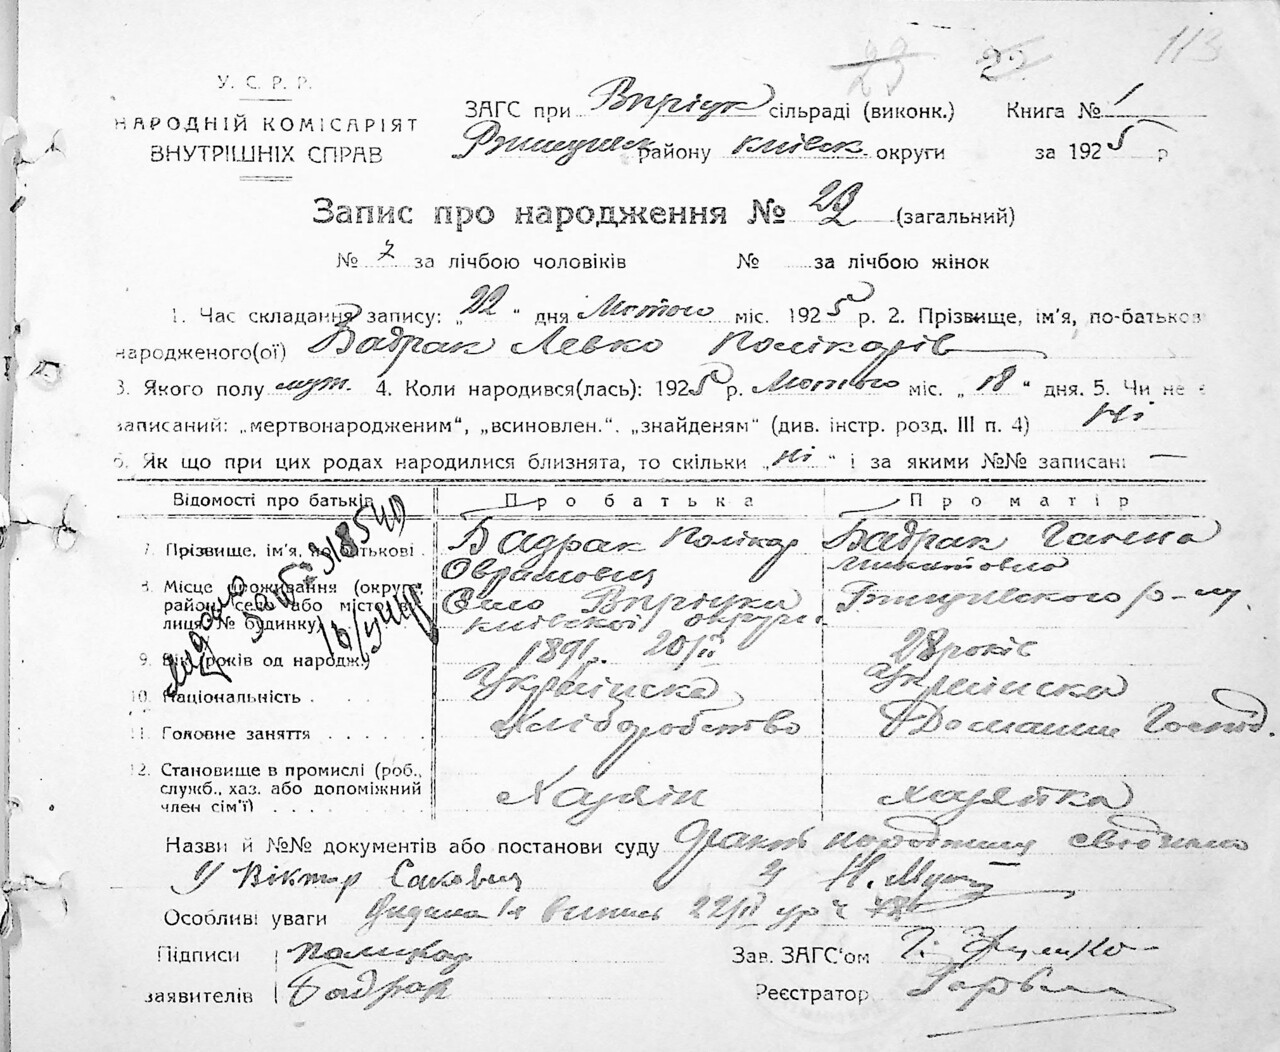 113
23 22
У. С. Р. Р.
НАРОДНІЙ КОМІСАРІЯТ
ВНУТРІШНІХ СПРАВ
ЗАГС при сільраді (виконк.) Книга № 1
району Київск. округи за 1925 р
Запис про народження № 22 (загальний)
№ 7 за лічбою чоловіків № за лічбою жінок
1. Час складання запису: „22“ дня Лютого міс. 1925 р. 2. Прізвище, ім'я, по-батькові
народженого(ої) Бадрак Левко Полікарів
3. Якого полу муж. 4. Коли народився(лась): 1925 р. Лютого міс. „18“ дня. 5. Чи не є
записаний: „мертвонародженим“, „всиновлен.“, „знайденям“ (див. інстр. розд. III п. 4) Ні
6. Як що при цих родах народилися близнята, то скільки „ні“ і за якими №№ записані —
Відомості про батьків Про батька Про матір
7. Прізвище, ім'я, по батькові Бадрак Полікар Бадрак Ганна
Оврамович Микитовна
8. Місце проживання (округа, район, село або місто, вулиця, № будинку) Село Київской округи р-ну.
9. Вік (років од народж.) 1891 г. 20/II 28 років
10. Національність Українска Українска
11. Головне заняття Хліборобство Домашне Господ.
12. Становище в промислі (роб., служб., хаз. або допоміжний член сім'ї) Хазяін хазяйка
Назви й №№ документів або постанови суду
Віктор
Особливі уваги Видана 22/II
Підписи Поликар Зав. ЗАГС'ом
заявителів Бадрак Реєстратор